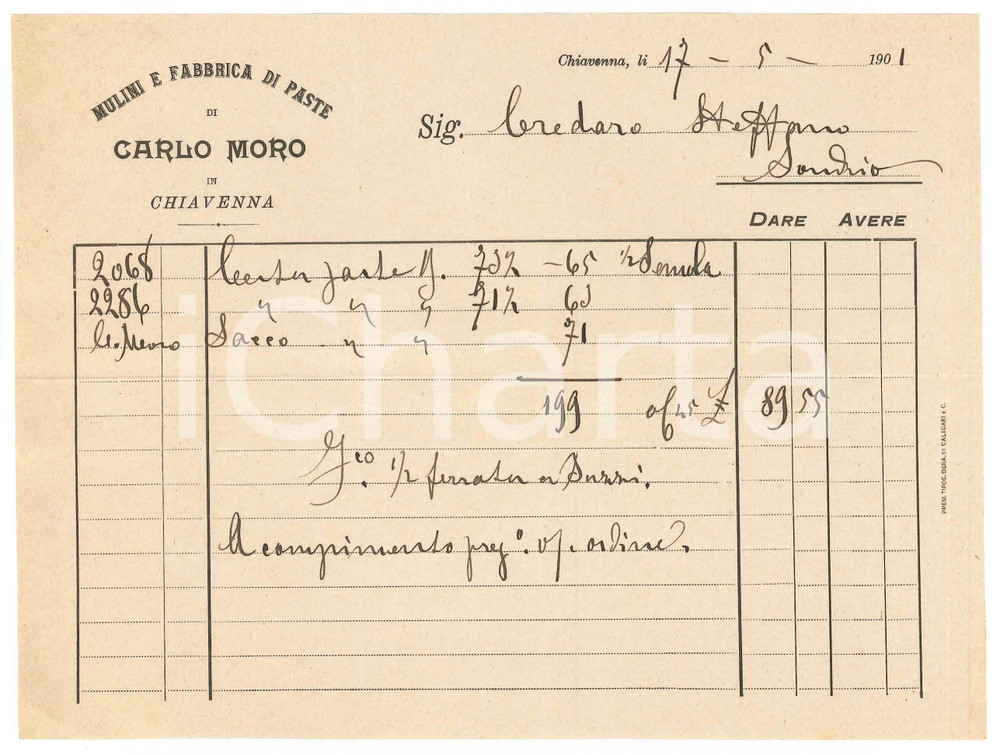 MULINI E FABBRICA DI PASTE
DI
CARLO MORO
IN
CHIAVENNA
Chiavenna, li 17 - 5 - 1901
Sig. Credaro Steffano
Sondrio
DARE AVERE
2068 Cesta paste N. 73½ - 65 ½ Semola
2286 " " " 71½ 63
C. Moro Sacco " " 71
199 a £ 89 55
Fco ½ ferrata a Suzzi.
A compimento preg°. vs. ordine.
PREM. TIPOG. OGNA, DI CALIGARI E C.
iCharta